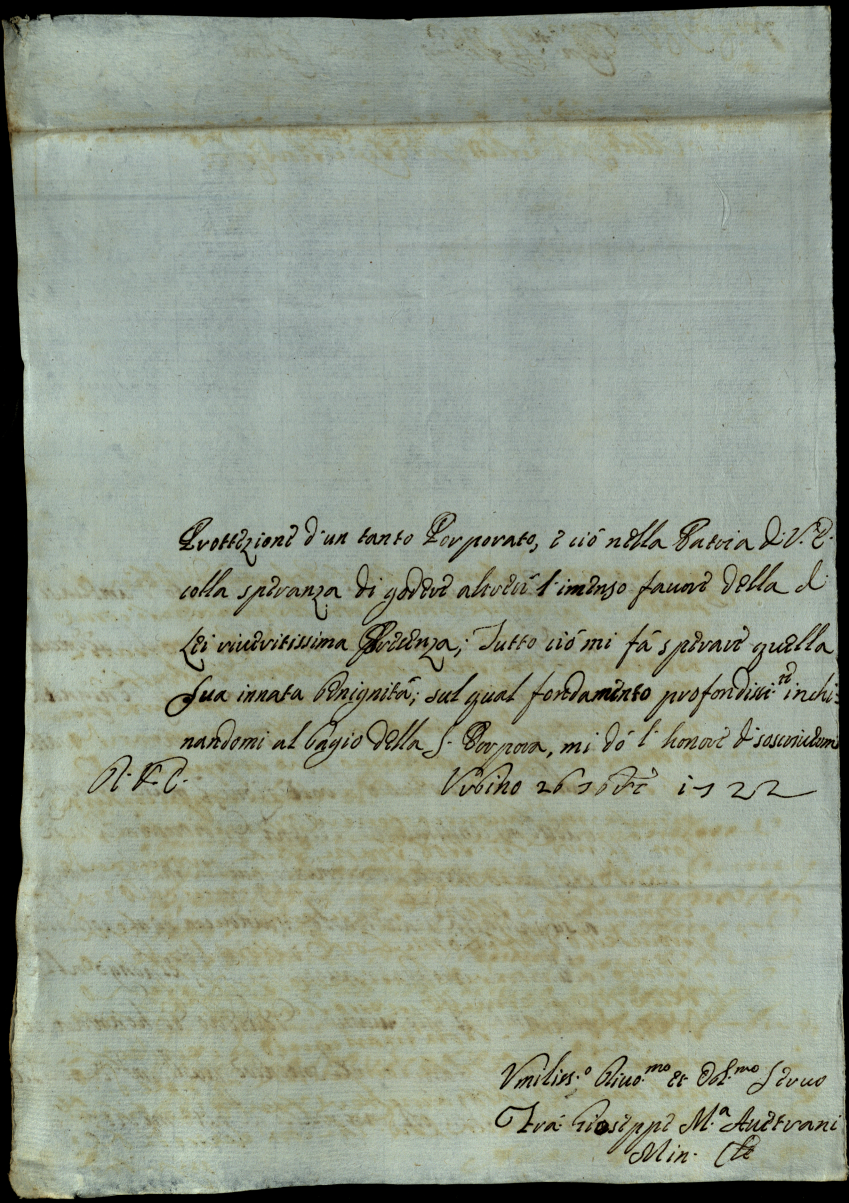 Prottezione d'un tanto Porporato, e ciò nella Patria di V. E.
colla speranza di godere altresì l'imenso favore della di
Lei riveritissima Presenza; Tutto ciò mi fà sperare quella
Sua innata Benignità; sul qual fondamento profondissi.te inchi=
nandomi al bagio della S. Porpora, mi dò l'honore di
D. V. E. Urbino 26 1722
Umiliss.o Divo.mo et Obl.mo Servo
Frà Gioseppe M.a
Min.